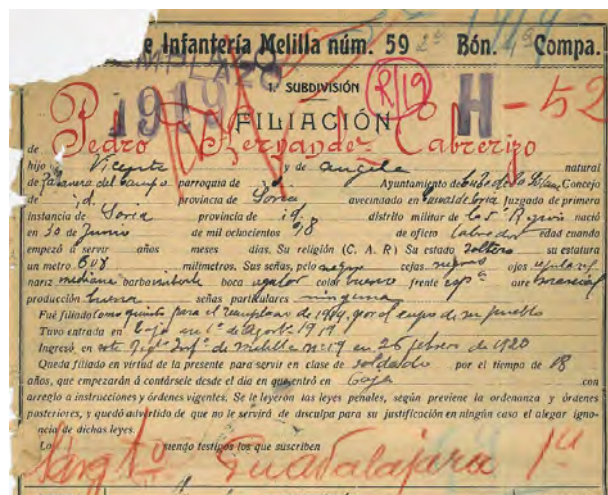 e Infantería Melilla núm. 59 Bón. Compa.
1919
1.ª SUBDIVISIÓN
R/19
H - 52
FILIACIÓN
de Pedro Fernandez Cabrerizo
hijo de Vicente y de Angela natural
de parroquia de id. Ayuntamiento de Concejo
de id. provincia de Soria avecindado en juzgado de primera
instancia de Soria provincia de id. distrito militar de la 5ª Region nació
en 30 de Junio de mil ochocientos 98 de oficio labrador edad cuando
empezó á servir años meses días. Su religión (C. A. R) Su estado soltero su estatura
un metro 608 milímetros. Sus señas, pelo negro cejas negras ojos
nariz mediana barba boca regular color bueno frente espª aire marcial
producción buena señas particulares ninguna
Fué filiado como quinto para el reemplazo de 1919, por el cupo de su pueblo
Tuvo entrada en Caja en 1º de Agosto 1919
Ingresó en este Regtº Infª de Melilla nº 59 en 26 febrero de 1920
Queda filiado en virtud de la presente para servir en clase de soldado por el tiempo de 18
años, que empezarán á contársele desde el día en que entró en Caja con
arreglo a instrucciones y órdenes vigentes. Se le leyeron las leyes penales, según previene la ordenanza y órdenes
posteriores, y quedó advertido de que no le servirá de disculpa para su justificación en ningún caso el alegar igno-
ncia de dichas leyes.
Lo siendo testigos los que suscriben
Sargtº Guadalajara 1ª